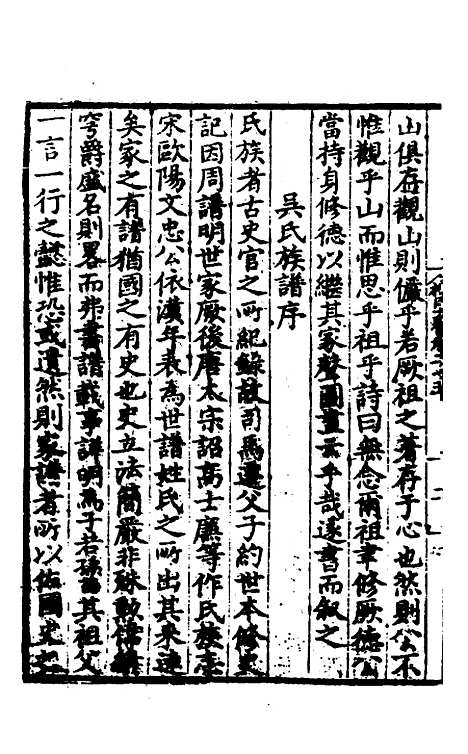 山俱存觀山則儼乎若厥祖之著存于心也然則公不
惟觀乎山而惟思乎祖乎詩曰無念爾祖聿修厥德公
當持身修德以繼其家聲圖畫云乎哉遂書而叙之
吴氏族譜序
氏族者古史官之所紀錄故司馬遷父子約世本修史
記因周譜明世家厥後唐太宗詔高士廉等作氏族志
宋歐陽文忠公依漢年表為世譜姓氏之所出其來遠
矣家之有譜猶國之有史也史立法簡嚴非殊勲偉績
穹爵盛名則畧而弗書譜載事詳明為子若孫者其祖父
一言一行之懿惟恐或遺然則家譜者所以佐國史之